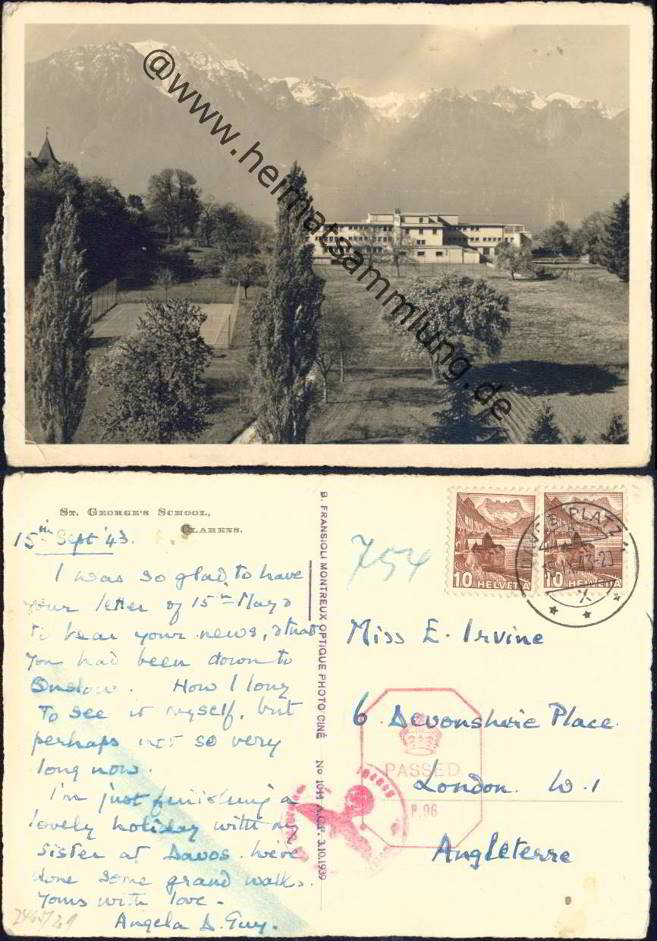 @www.heimatsammlung.de
St. George's School,
Clarens.
15th Sept '43.
I was so glad to have
your letter of 15th May &
to hear your news, & that
you had been down to
Onslow. How I long
to see it myself, but
perhaps not so very
long now
I'm just finishing a
lovely holiday with my
sister at Davos. We've
done some grand walks.
Yours with love.
Angela D. Guy.
B. FRANSIOLI MONTREUX OPTIQUE PHOTO CINÉ No 1041 A.C.F. 3.10.1939
754
10 HELVETIA
10 HELVETIA
PLATZ
Miss E. Irvine
6 Devonshire Place.
London. W.1
Angleterre
PASSED
P.06